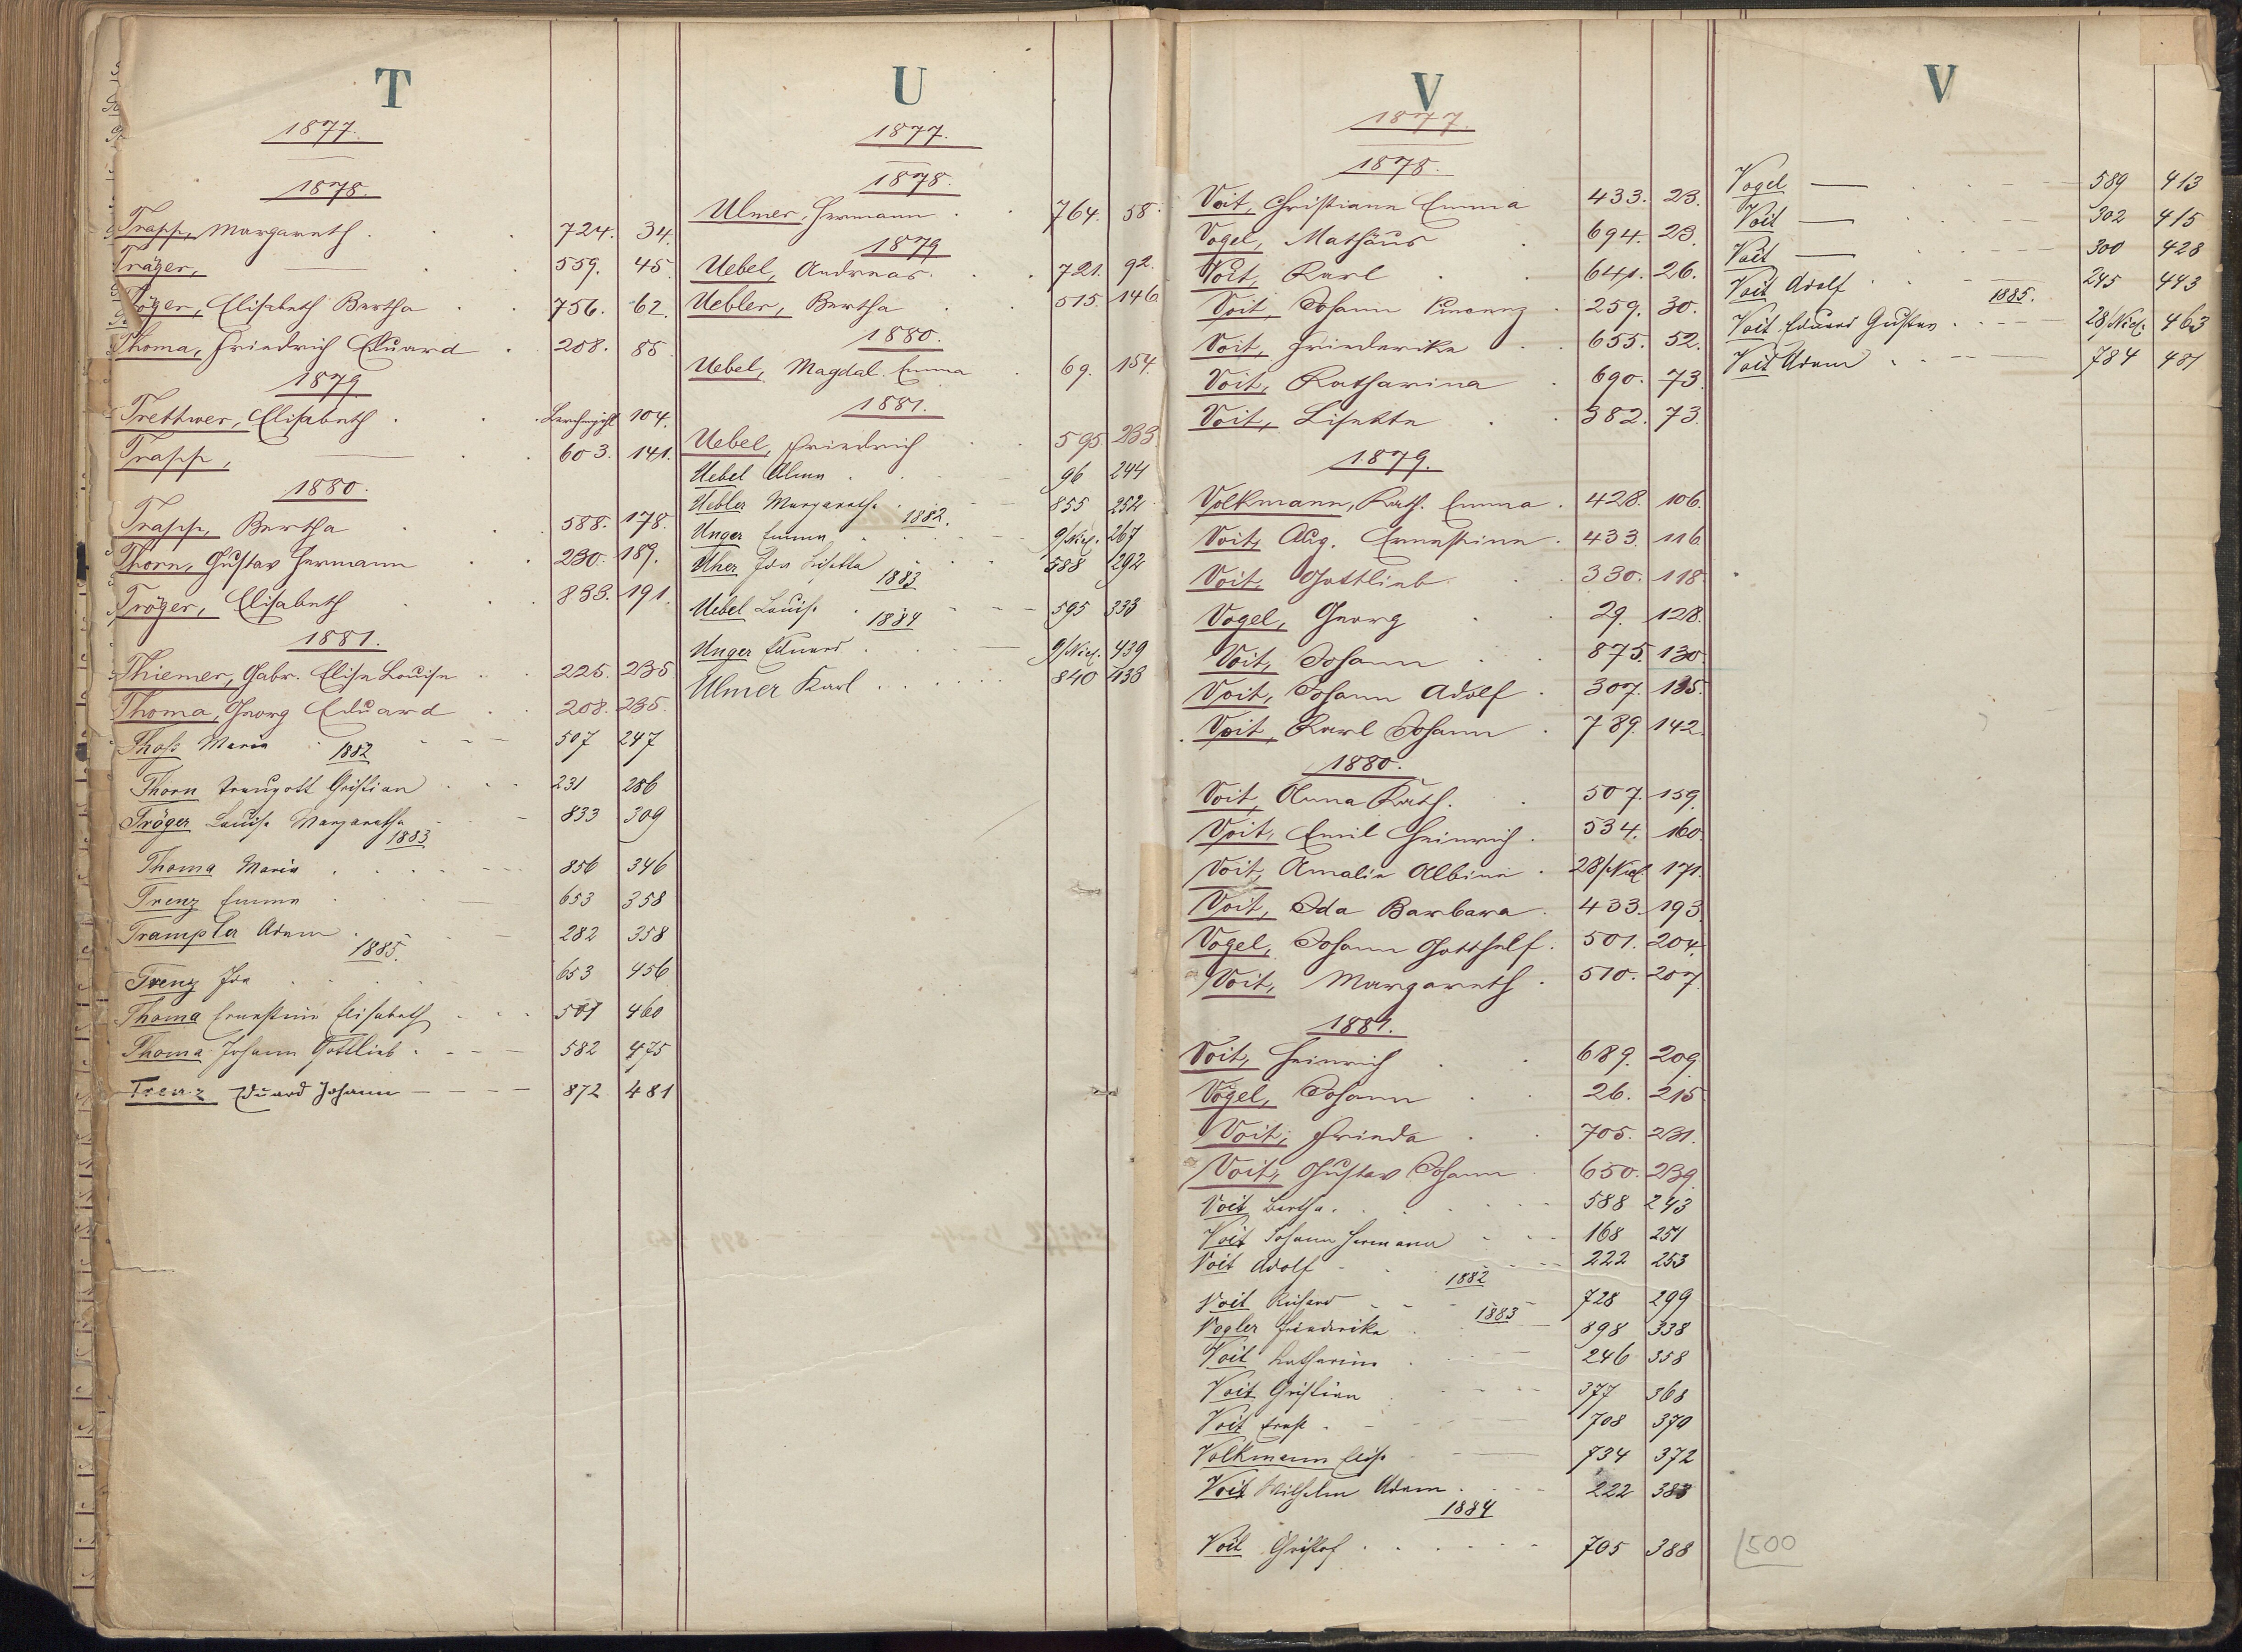 T
1877.
1878.
Trapp, Margareth . 724. 34.
Träger, — 559. 45
Tröger, Elisabeth Bertha 756. 62.
Thoma, Friedrich Eduard 208. 85
1879
Trettwer, Elisabeth 104.
Trapp, — 603. 141.
1880.
Trapp, Bertha 588. 178.
Thorn, Gustav Hermann 230. 189.
Tröger, Elisabeth 833. 191.
1881.
Thiemer, Gabr. Elise Louise 225. 235.
Thoma, Georg Eduard 208. 235.
Thoss Maria 507 247
1882
Thorn Traugott Christian 231 286
Tröger Louise Margaretha 833 309
1883
Thoma Maria 856 346
Trenz Emma 653 358
Trampler Adam 282 358
1885.
Trenz Ida 653 456
Thoma Ernestine Elisabeth 501 460
Thoma Johann Gottlieb 582 475
Trenz Eduard Johann 872 481
U
1877.
1878.
Ulmer, Hermann 764. 58.
1879
Uebel, Andreas 721. 92.
Uebler, Bertha 515. 146
1880.
Uebel, Magdal. Emma 69. 154.
1881.
Uebel, Friedrich 595 233.
Uebel Alma 96 244
Uebler Margaretha 855 252
1882.
Unger Emma 9/Nics. 267
Uher Ida Lisetta 588 292
1883
Uebel Louise 595 333
1884
Unger Eduard 9/Nics. 439
Ulmer Karl 840 438
V
1877.
1878.
Voit, Christiane Emma 433. 23.
Vogel, Mathäus 694. 23.
Voit, Karl 641. 26.
Voit, Johann 259. 30.
Voit, Friederike 655. 52.
Voit, Katharina 690. 73.
Voit, Lisette 382. 73.
1879.
Volkmann, Kath. Emma 428. 106.
Voit, Aug. Ernestine 433. 116
Voit, Gottlieb 330. 118.
Vogel, Georg 29. 128.
Voit, Johann 875. 130.
Voit, Johann Adolf 307. 135.
Voit, Karl Johann 789. 142.
1880.
Voit, Anna Kath. 507. 159.
Voit, Emil Heinrich 534. 160.
Voit, Amalie Albine 28/Nics. 171.
Voit, Ida Barbara 433. 193.
Vogel, Johann Gotthelf 501. 204.
Voit, Margareth 510. 207.
1881.
Voit, Heinrich 689. 209
Vogel, Johann 26. 215
Voit, Frieda 705. 231.
Voit, Gustav Johann 650. 239.
Voit Bertha 588 243
Voit Johann Hermann 168 251
Voit Adolf 222 253
1882
Voit Richard 728 299
1883
Vogler Friederike 898 338
Voit Katharina 246 358
Voit Christian 377 368
Voit Ernst 708 370
Volkmann Elise 734 372
Voit Wilhelm Adam 222 383
1884
Voit Christof 705 388
V
Vogel — 589 413
Voit — 302 415
Voit — 300 428
Voit Adolf 245 443
1885.
Voit Eduard Gustav 28/Nics. 463
Voit Adam 784 481
500